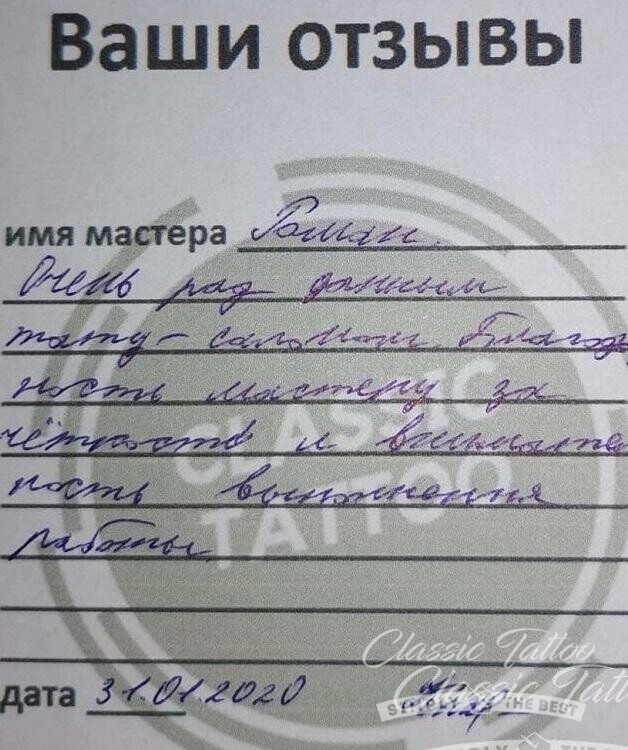 Ваши отзывы
имя мастера Роман.
Очень рад данным
тату-салоном. Благод
ность мастеру за
чёткость и внимате
ность выполнения
работы.
CLASSIC
TATTOO
Classic Tattoo
Classic Tatt
SIMPLY THE BEST
дата 31.01.2020